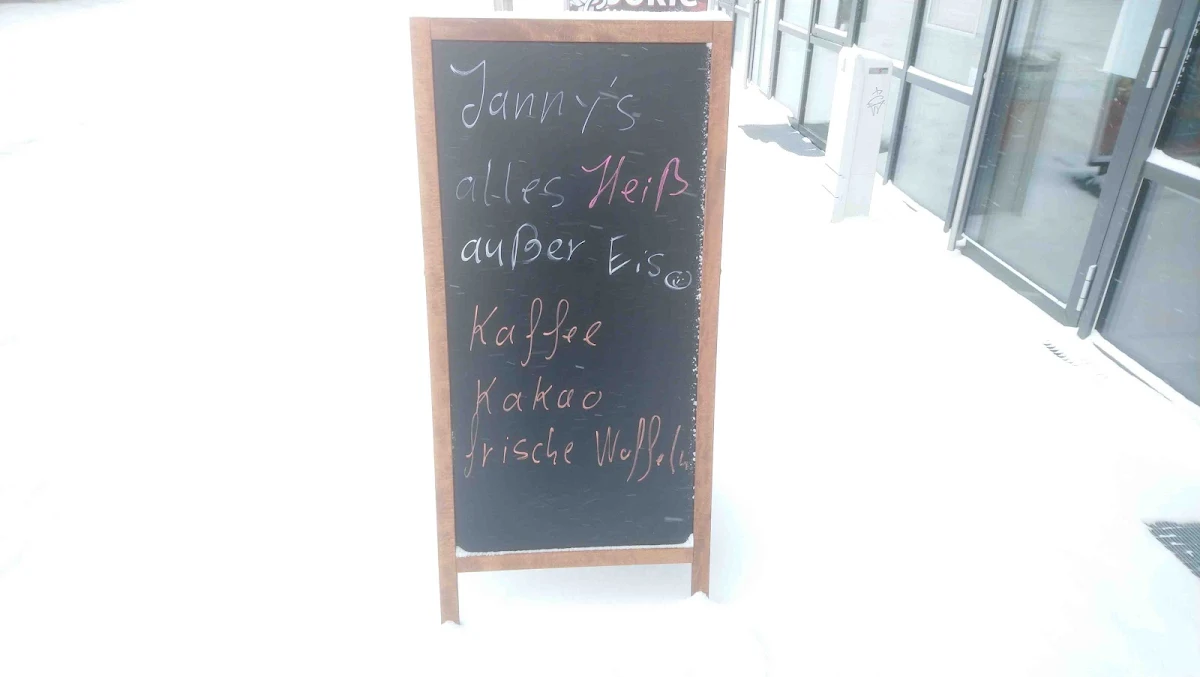 Janny's
alles Heiß
außer Eis
Kaffee
Kakao
frische Waffeln